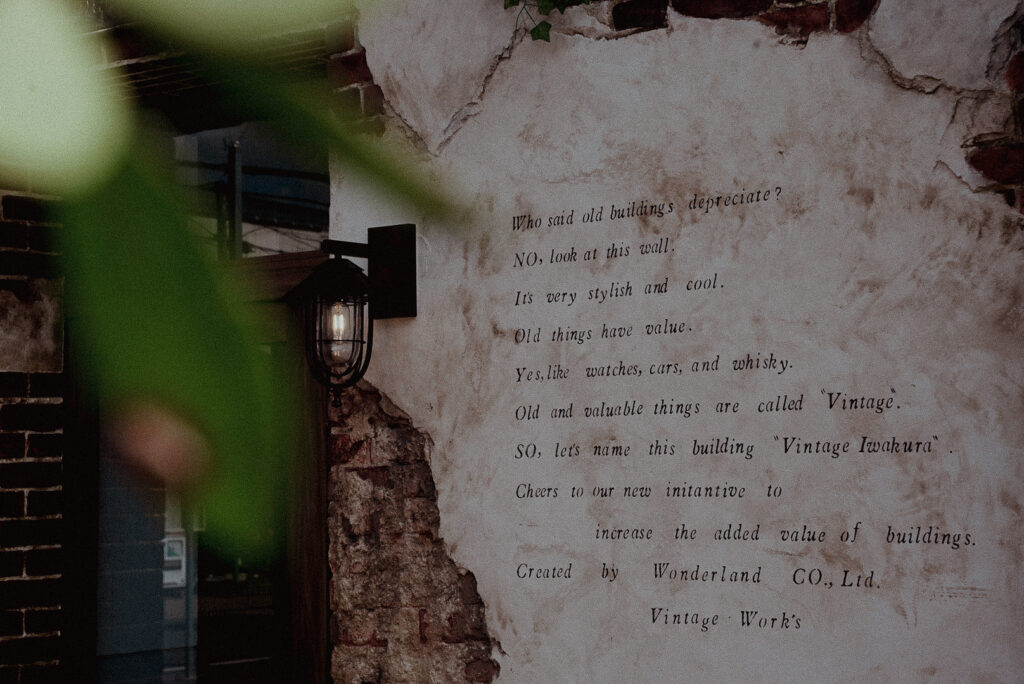 Who said old buildings depreciate?
NO, look at this wall.
It's very stylish and cool.
Old things have value.
Yes, like watches, cars, and whisky.
Old and valuable things are called "Vintage".
SO, let's name this building "Vintage Iwakura".
Cheers to our new initantive to
increase the added value of buildings.
Created by Wonderland CO., Ltd.
Vintage Work's